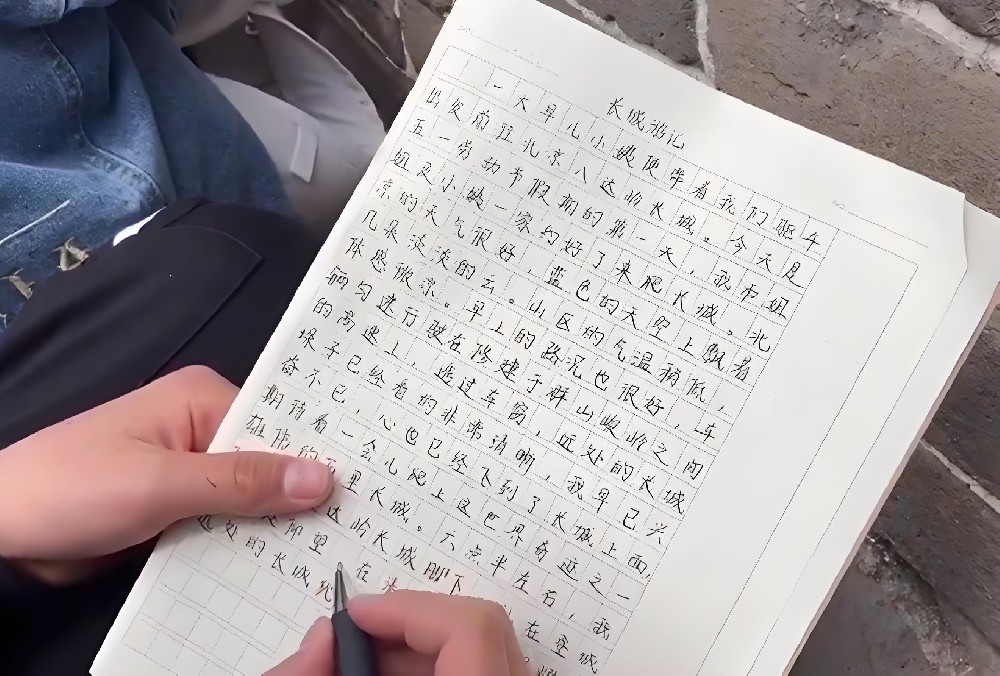 长城游记
一大早儿小姨便带着我们驱车
出发前往北京八达岭长城。今天是
五一劳动节假期的第一天，我和姐
姐及小姨一家约好了来爬长城。北
京的天气很好，蓝色的天空上飘着
几朵淡淡的云。山区的气温稍低，
体感微凉。早上的路况也很好，车
辆匀速行驶在修建于群山峻岭之间
的高速上，透过车窗，近处的长城
垛子已经看的非常清晰，我早已兴
奋不已，心也已经飞到了长城上面，
期待着一会儿爬上这世界奇迹之一
雄伟的万里长城。六点半左右，我
达岭长城脚下
仰望 在
远处的长城
在登城